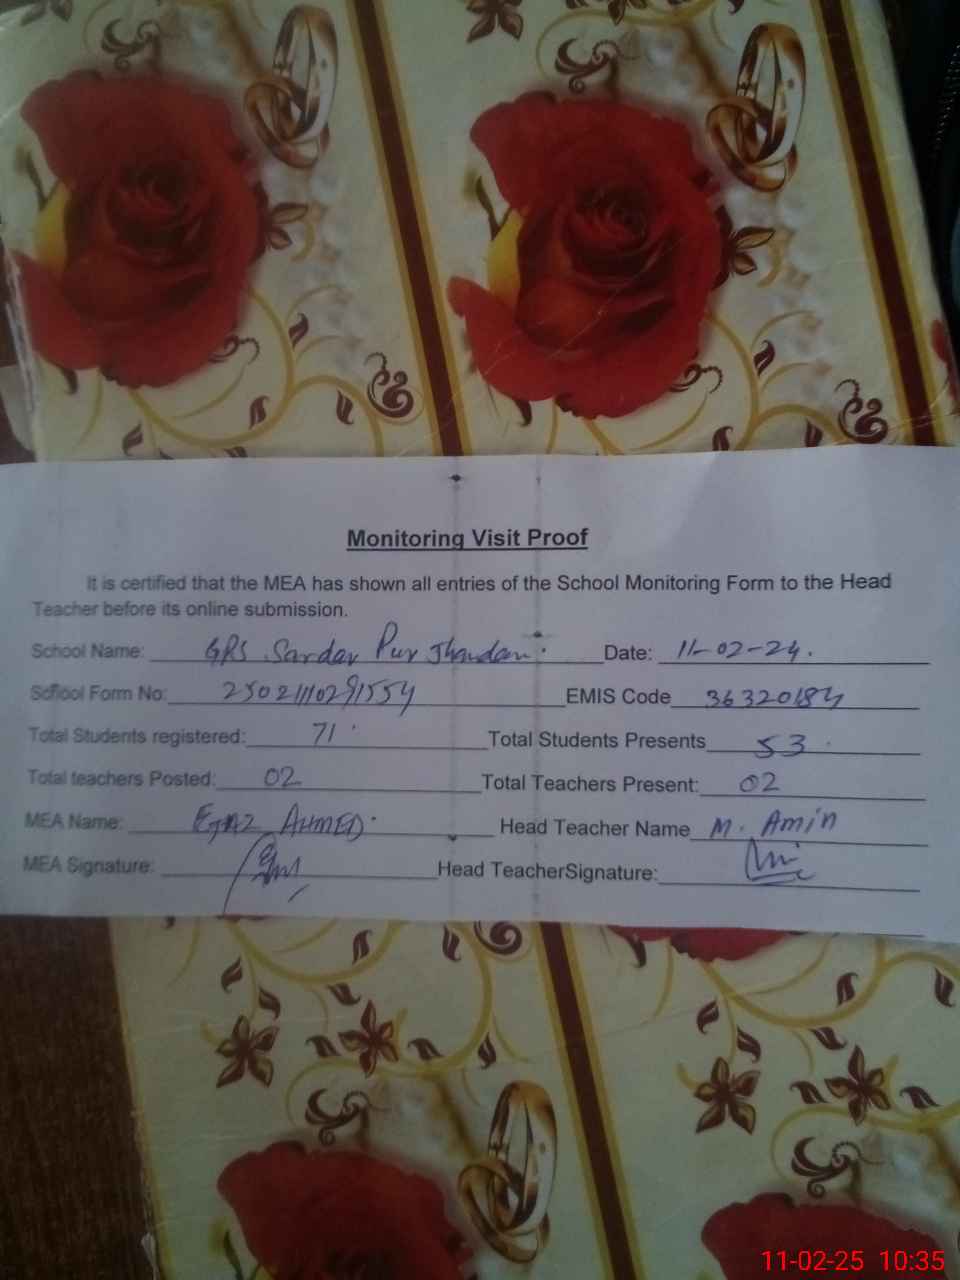 Monitoring Visit Proof
It is certified that the MEA has shown all entries of the School Monitoring Form to the Head
Teacher before its online submission.
School Name: GPS Sardar Pur Jhandan. Date: 11-02-24.
School Form No: 25021110291554 EMIS Code 36320184
Total Students registered: 71 Total Students Presents 53
Total teachers Posted: 02 Total Teachers Present: 02
MEA Name: EJAZ AHMED Head Teacher Name M. Amin
MEA Signature: Head TeacherSignature:
11-02-25 10:35